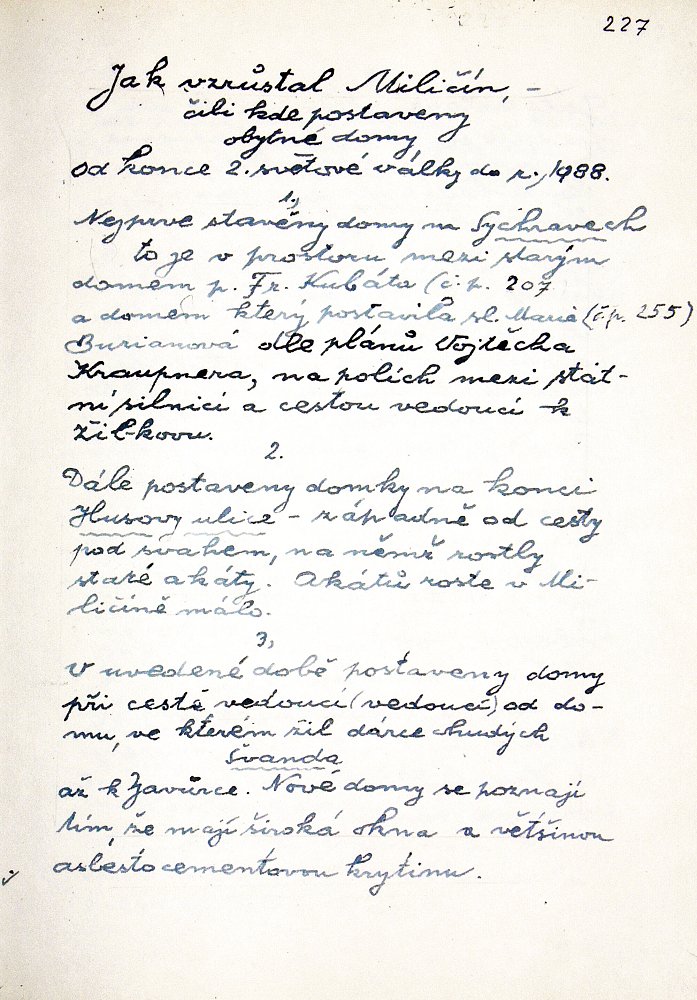 227
Jak vzrůstal Miličín, –
čili kde postaveny
obytné domy
od konce 2. světové války do r. 1988.
1.,
Nejprve stavěny domy na Sychravech
to je v prostoru mezi starým
domem p. Fr. Kubáta (č. p. 207
a domem který postavila sl. Marie (č.p. 255)
Burianová dle plánů Vojtěcha
Kraupnera, na polích mezi stát-
ní silnicí a cestou vedoucí k
Žibkovu.
2.
Dále postaveny domky na konci
Husovy ulice – západně od cesty
pod svahem, na němž rostly
staré akáty. Akátů roste v Mi-
ličíně málo.
3,
V uvedené době postaveny domy
při cestě vedoucí (vedoucí) od do-
mu, ve kterém žil dárce chudých
Švanda
až k Zavůrce. Nové domy se poznají
tím, že mají široká okna a většinou
asbestocementovou krytinu.